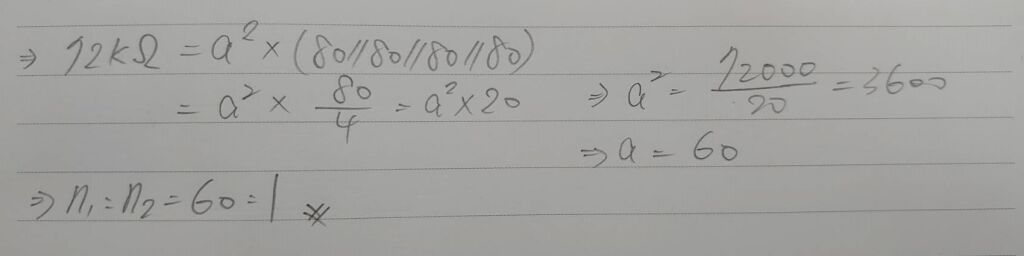 ⇒ 72kΩ = a² × (80//80//80//80)
= a² × 80/4 = a² × 20
⇒ a² = 72000/20 = 3600
⇒ a = 60
⇒ n₁ : n₂ = 60 : 1 ※